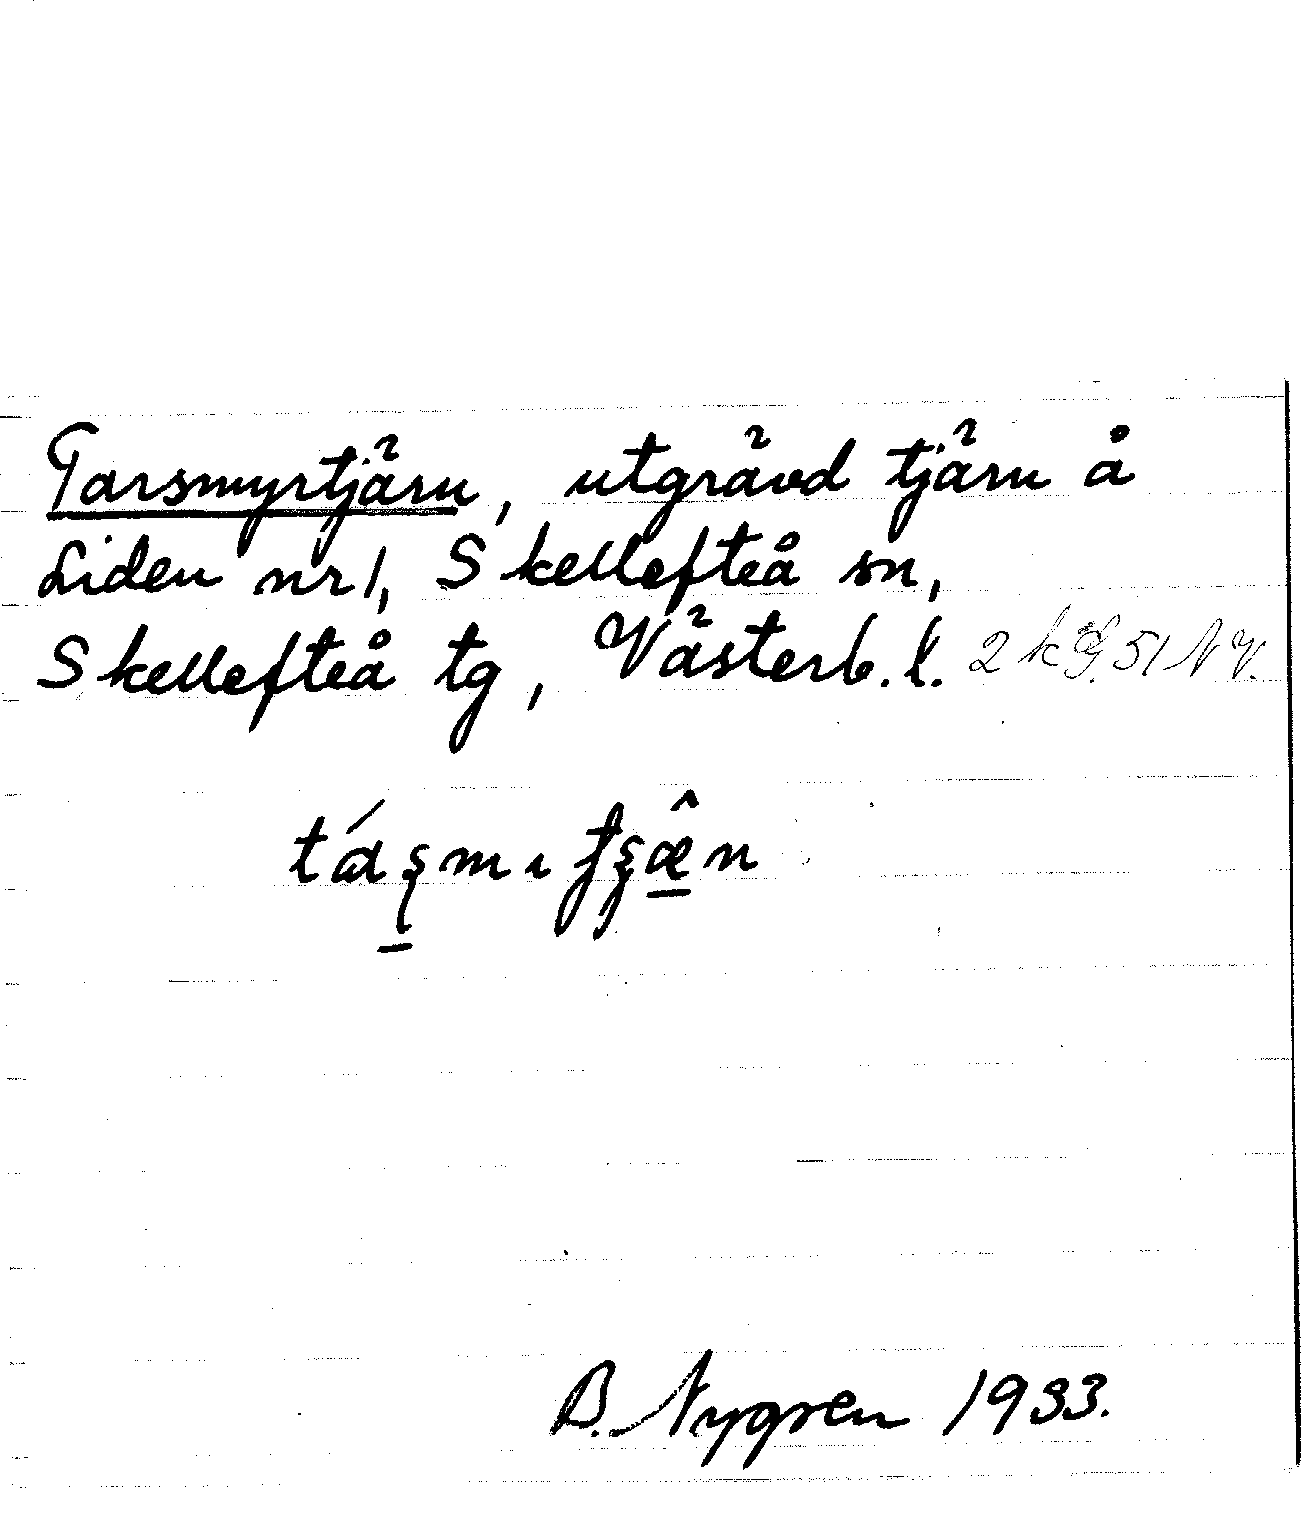 Tarsmyrtjärn, utgrävd tjärn å
Liden nr 1, Skellefteå sn,
Skellefteå tg, Västerb. l. 2 k 51 NV.
B. Nygren 1933.